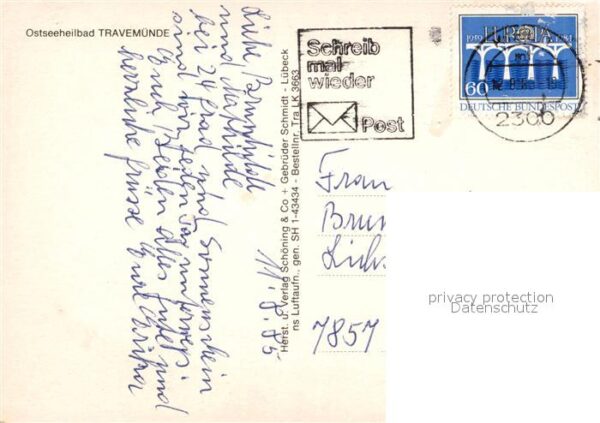 Ostseeheilbad TRAVEMÜNDE
Liebe Brunhilde
und Mathilde
bei 24 Grad und Sonnenschein
sind wir jeden Tag unterwegs.
Euch beiden alles Gute und
herzliche Grüße Eure
11.8.85
Herst. u. Verlag Schöning & Co + Gebrüder Schmidt - Lübeck
ns Luftaufn., gen. SH 1-43434 - Bestellnr. Tra LK 3663
Schreib
mal
wieder
Post
EUROPA
1959 1984
60
DEUTSCHE BUNDESPOST
2300
Frau
Brun
Lich
7857
privacy protection
Datenschutz